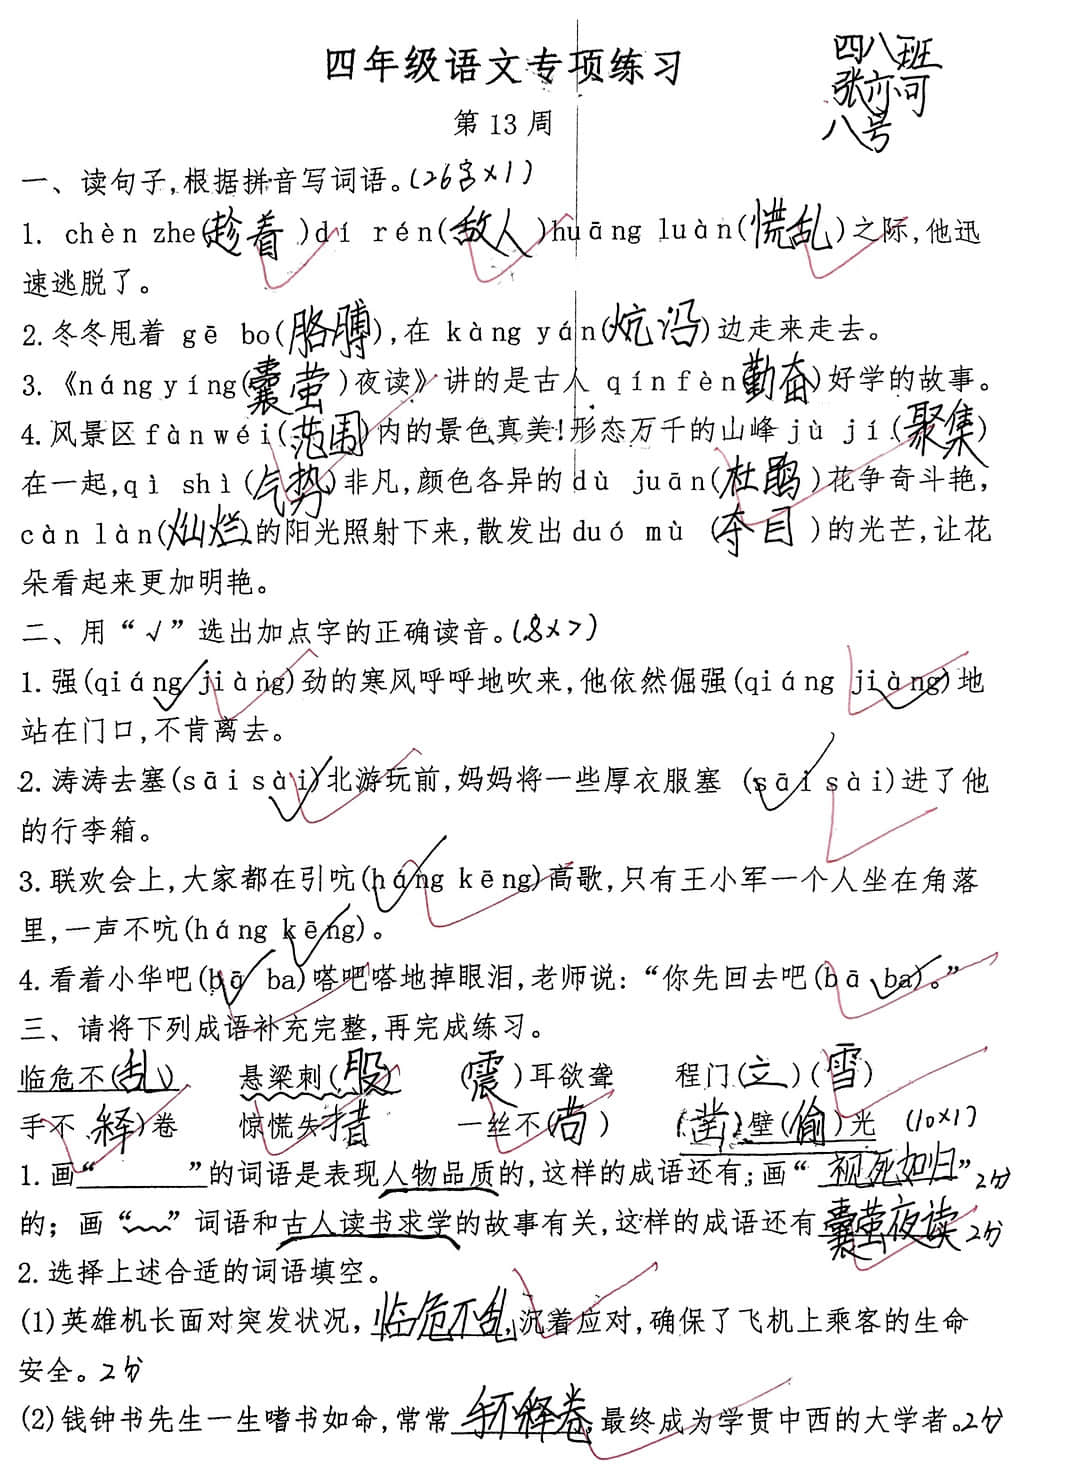 四年级语文专项练习
四八班
张亦可
八号
第 13 周
一、读句子,根据拼音写词语。(26字×1)
1. chèn zhe(趁着)dí rén(敌人)huāng luàn(慌乱)之际,他迅
速逃脱了。
2.冬冬甩着 gē bo(胳膊),在 kàng yán(炕沿)边走来走去。
3.《náng yíng(囊萤)夜读》讲的是古人 qín fèn(勤奋)好学的故事。
4.风景区 fàn wéi(范围)内的景色真美!形态万千的山峰 jù jí(聚集)
在一起,qì shì(气势)非凡,颜色各异的 dù juān(杜鹃)花争奇斗艳,
càn làn(灿烂)的阳光照射下来,散发出 duó mù (夺目)的光芒,让花
朵看起来更加明艳。
二、用“√”选出加点字的正确读音。(8×2)
1.强(qiáng√ jiàng)劲的寒风呼呼地吹来,他依然倔强(qiáng jiàng√)地
站在门口,不肯离去。
2.涛涛去塞(sāi sài√)北游玩前,妈妈将一些厚衣服塞 (sāi√ sài)进了他
的行李箱。
3.联欢会上,大家都在引吭(háng√ kēng)高歌,只有王小军一个人坐在角落
里,一声不吭(háng kēng√)。
4.看着小华吧(bā√ ba)嗒吧嗒地掉眼泪,老师说:“你先回去吧(bā ba√)。”
三、请将下列成语补充完整,再完成练习。
临危不(乱) 悬梁刺(股) (震)耳欲聋 程门(立)(雪)
手不(释)卷 惊慌失措 一丝不(苟) (凿)壁(偷)光 (10×1)
1.画“______”的词语是表现人物品质的,这样的成语还有;画“视死如归”2分
的;画“﹏﹏”词语和古人读书求学的故事有关,这样的成语还有囊萤夜读2分
2.选择上述合适的词语填空。
(1)英雄机长面对突发状况,临危不乱,沉着应对,确保了飞机上乘客的生命
安全。2分
(2)钱钟书先生一生嗜书如命,常常手不释卷,最终成为学贯中西的大学者。2分